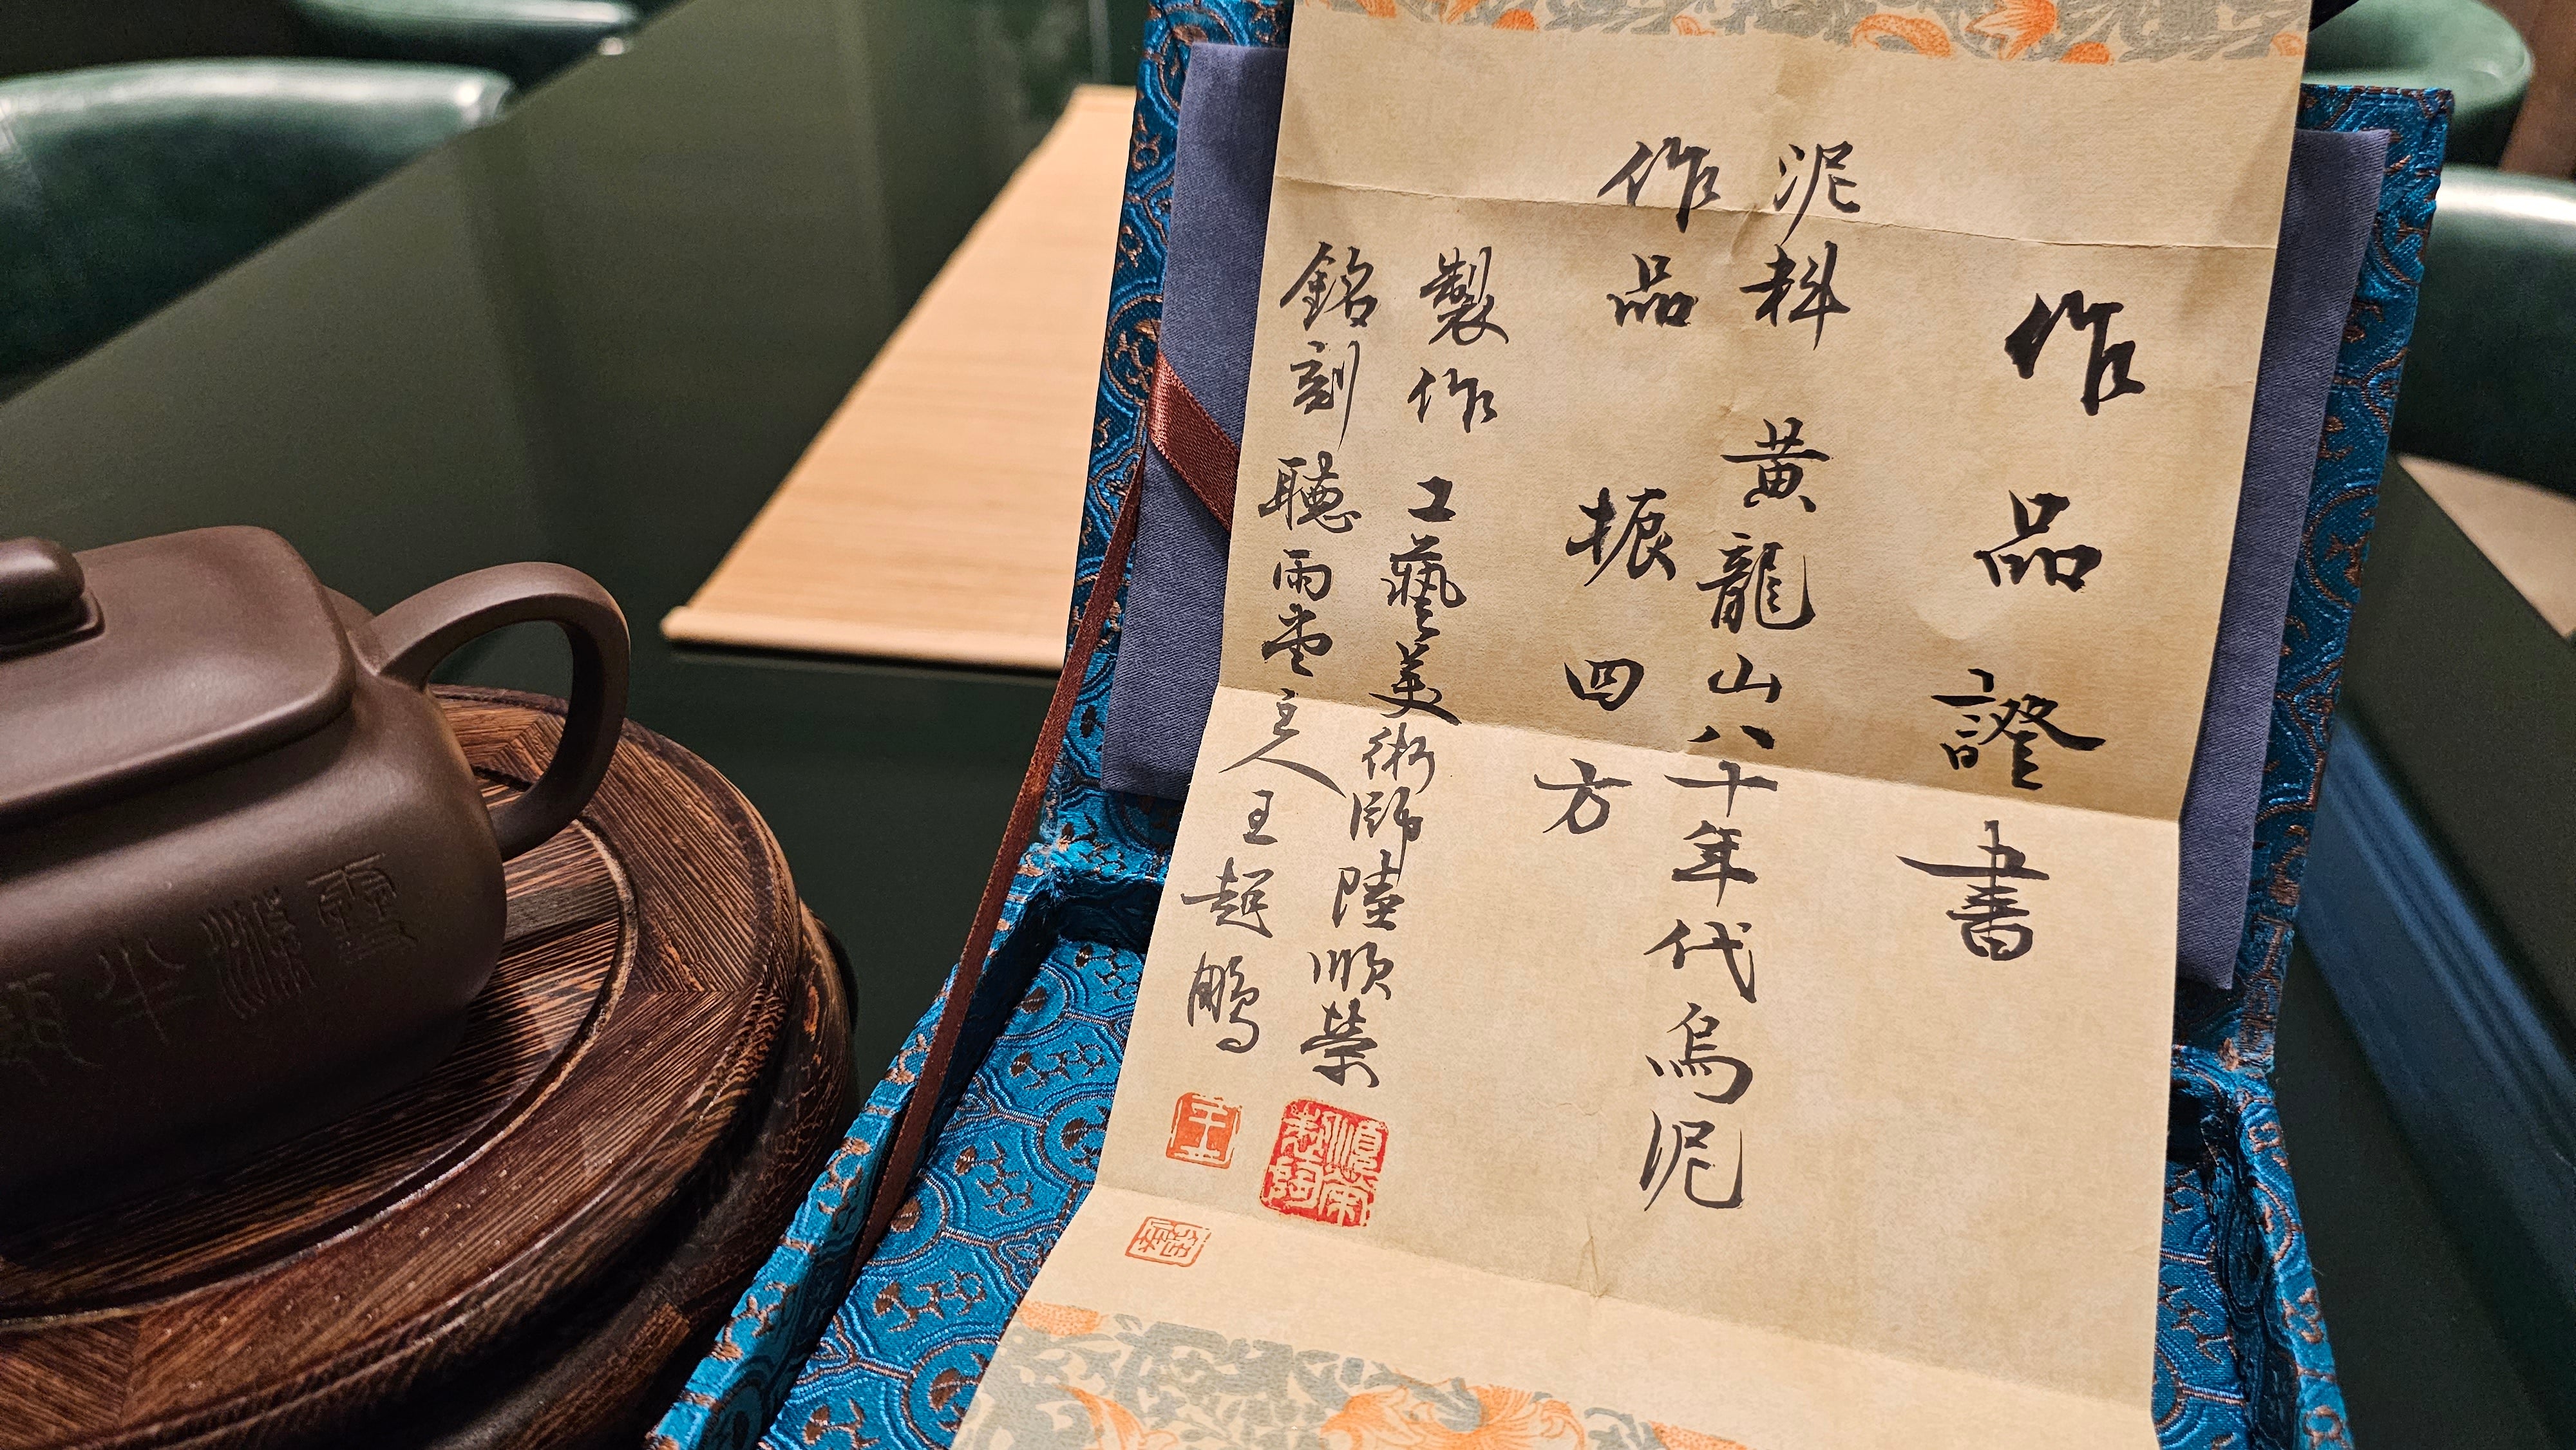 作品證書
泥料 黄龍山八十年代烏泥
作品 振四方
製作 工藝美術師陸順榮
銘刻 聽雨堂主人王超鵬
順榮製陶
王